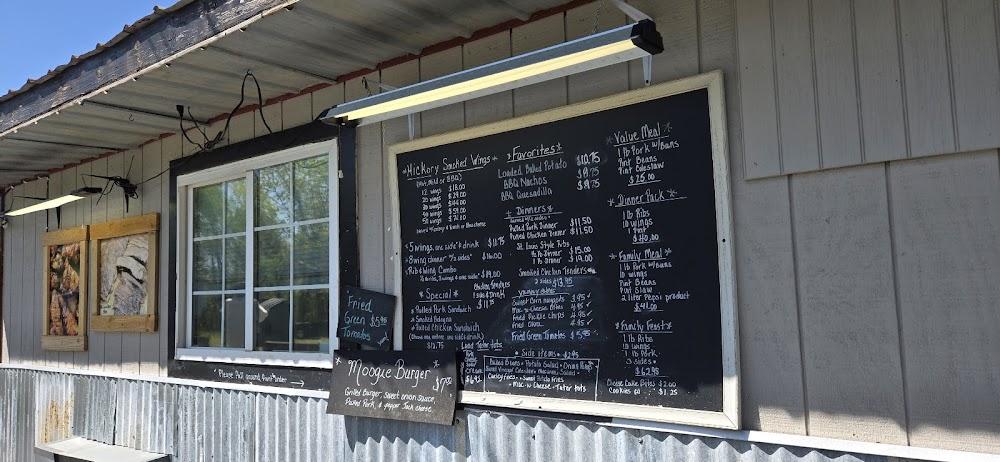 *Hickory Smoked Wings*
Hot, Mild or BBQ
12 wings $18.00
20 wings $29.00
30 wings $44.00
40 wings $59.00
50 wings
*5 wings, one side & drink $11.75
*8 wing dinner w/2 sides* $16.00
*Rib & Wing Combo $19.00
* Special *
Pulled Pork Sandwich
Smoked Bologna
Pulled Chicken Sandwich
$12.75
*Favorites*
Loaded Baked Potato $10.75
BBQ Nachos $9.75
BBQ Quesadilla $8.75
* Dinners *
Pulled Pork Dinner $11.50
Pulled Chicken Dinner $11.50
St. Louis Style Ribs
1/2 lb Dinner $15.00
1 lb Dinner $19.00
Smoked Chicken Tenders
2 sides $13.95
Sweet Corn nuggets 3.95 ✓
Mac-n-Cheese Bites 4.95 ✓
Fried Pickle chips 4.95 ✓
Fried Okra 4.95 ✓
Fried Green Tomatoes $5.95
* Side items * $2.95
Baked Beans * Potato Salad * Onion Rings
Curley fries * Sweet Potato Fries
* Mac-n-Cheese * Tater tots
Load Tater tots
*Value Meal*
1 lb Pork w/Buns
Pint Beans
Pint Coleslaw
$25.00
*Dinner Pack*
1 lb Ribs
10 wings
$40.00
*Family Meal*
1 lb Pork w/Buns
10 wings
Pint Beans
Pint Slaw
2 liter Pepsi product
$41.00
*Family Feast*
1 lb Ribs
10 wings
1 lb Pork
3 sides
$62.95
Cheese Cake Bites $2.00
Cookies $1.25
Fried
Green $5.95
Tomatoes
*Moogie Burger*
Grilled Burger, sweet onion sauce,
Pulled Pork, & pepper Jack cheese.
* Please Pull around front *